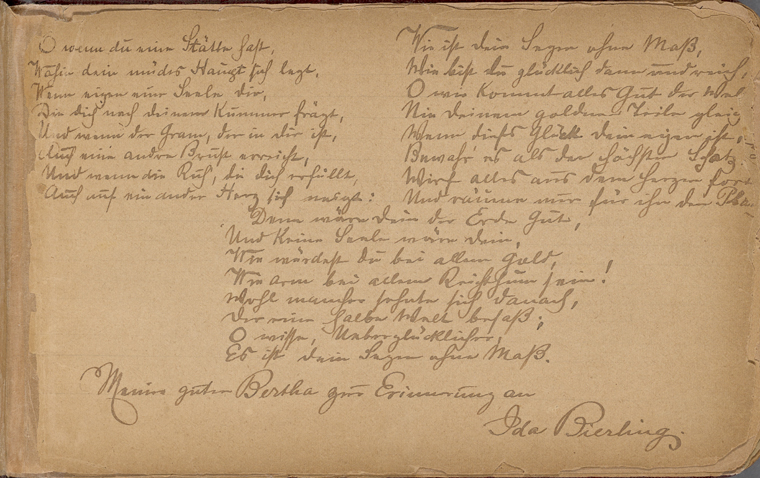 O wenn du eine Stätte hast,
Wohin dein müdes Haupt sich legt,
Wenn eigen eine Seele dir,
Die dich nach deinem Kummer frägt,
Und wenn der Gram, der in dir ist,
Auch eine andre Brust erreicht,
Und wenn die Ruh', die dich erfüllt,
Auch auf ein ander Herz sich neigt:
Wie ist dein Segen ohne Maß,
Wie bist du glücklich dann und reich,
O wie kommt alles Gut der Wel
Nie deinem goldnen Teile gleic
Wenn dieß Glück dein eigen ist,
Bewahr es als den höchsten Schatz
Wirf alles aus dem Herzen fort
Und räume nur für ihn den Pla
Denn wäre dein der Erde Gut,
Und keine Seele wäre dein,
Wie würdest du bei allem Gold,
Wie arm bei allem Reichthum sein!
Wohl mancher sehnte sich danach,
Der eine halbe Welt besaß;
O wisse, Ueberglücklicher,
Es ist dein Segen ohne Maß.
Meiner guten Bertha zur Erinnerung an
Ida Bierling.